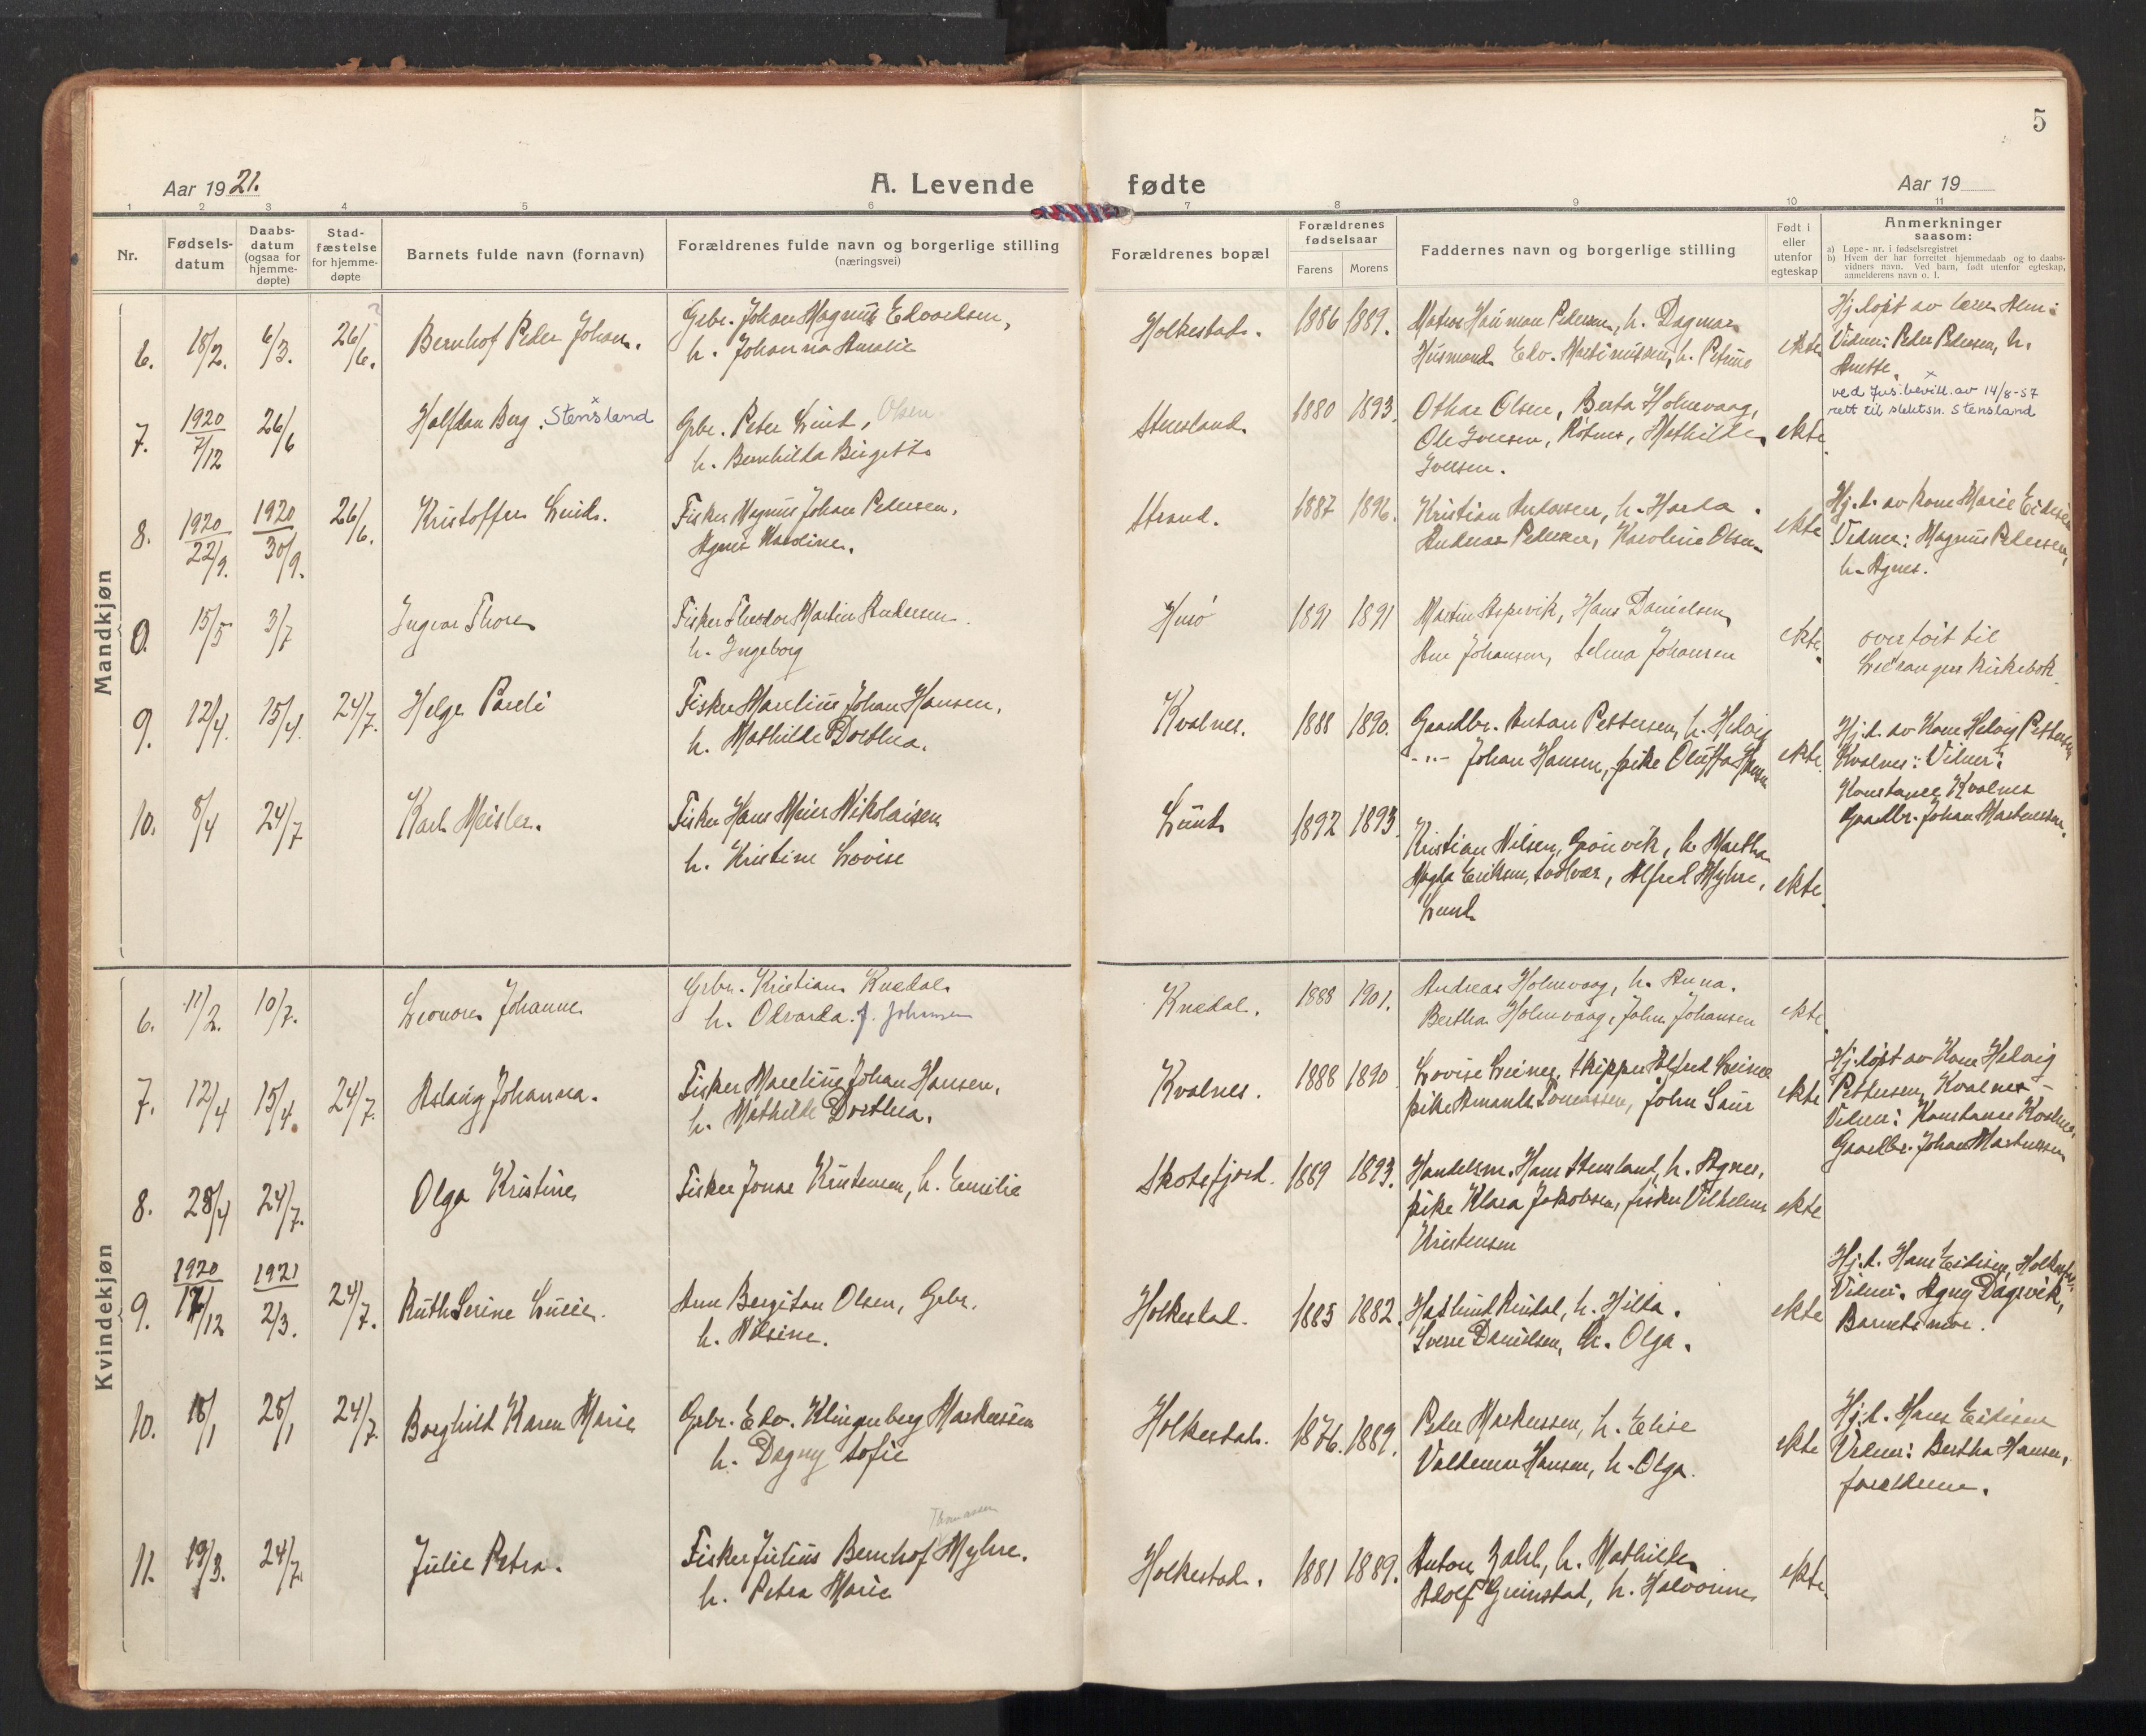 5
Aar 1921.
A. Levende fødte
Aar 19
1 2 3 4 5 6 7 8 9 10 11
Nr.
Fødsels-
datum
Daabs-
datum
(ogsaa for
hjemme-
døpte)
Stad-
fæstelse
for hjemme-
døpte
Barnets fulde navn (fornavn)
Forældrenes fulde navn og borgerlige stilling
(næringsvei)
Forældrenes bopæl
Forældrenes
fødselsaar
Farens Morens
Faddernes navn og borgerlige stilling
Født i
eller
utenfor
egteskap
Anmerkninger
saasom:
a) Løpe-nr. i fødselsregistret
b) Hvem der har forrettet hjemmedaab og to daabs-
vidners navn. Ved barn, født utenfor egteskap,
anmelderens navn o. l.
Mandkjøn
6. 18/2. 6/3. 26/6. Bernhof Peder Johan.
Grbr. Johan Magnus Edvardsen,
h. Johanna Amalie
Holkestad. 1886 1889.
Hauman Pedersen, h. Dagmar
Husmand Edv. Martinussen, h. Petrine
ekte
Hj.døpt av lærer
Vidner: Peder Pedersen, h.
Anette.
7. 1920 7/12 26/6 Halfdan Berg. Stensland
Grbr. Peter Lund, Olsen
h. Bernhilda Birgitte
Stensland. 1880 1893.
Othar Olsen, Berta Holmvaag,
Ole Iversen, Mathilde
Iversen.
ekte.
x
ved Jus.bevill. av 14/8-57
rett til slektsn. Stensland
8. 1920 22/9. 1920 30/9. 26/6. Kristoffer Lund.
Fisker Magnus Johan Pedersen,
Agnes Karoline.
Strand. 1887 1896.
Kristian Andersen, h. Harda.
Andreas Pedersen, Karoline Olsen
ekte
Hj.d. av kone Marie Eidissen
Vidner: Magnus Pedersen,
h. Agnes.
0. 15/5 3/7 Ingvar Thore
Fisker Theodor Martin Andersen.
h. Ingeborg
1891 1891
Martin Aspevik, Hans Danielsen
Ane Johansen, Selma Johansen
ekte.
overført til
Ledranges Kirkebok
9. 12/4. 15/4. 24/7. Helge Pareli
Fisker Marelius Johan Hansen,
h. Mathilde Dorthea.
Kvalnes. 1888 1890.
Gaardbr. Anton Pettersen, h. Helvig
-"- Johan Hansen, pike Oluffa
ekte.
Hj.d. av Kone Helvig Pettersen
Kvalnes: Vidner:
Konstance Kvalnes
Gaardbr. Johan Martinussen.
10. 8/4 24/7 Karl Meisler.
Fisker Hans Meier Nikolaisen
h. Kristine Lovise
Lund 1892 1893.
Kristian Nilsen, Grønvik, h. Martha
Magda Eriksen, Svolvær, Alfred Myhre,
Lund
ekte.
Kvindekjøn
6. 11/2. 10/7. Leonore Johanne
Grbr. Kristian Knedal
h. Odvarda. f. Johansen
Knedal. 1888 1901.
Andreas Holmvaag, h. Anna.
Bertha Holmvaag, John Johansen
ekte.
7. 12/4 15/4. 24/7. Aslaug Johanna.
Fisker Marelius Johan Hansen,
h. Mathilde Dorthea.
Kvalnes. 1888 1890
Lovise Leines, skipper Alfred Leines
pike Amanda Tomassen, John Saur
ekte
Hj.døpt av Kone Helvig
Pettersen, Kvalnes -
Vidner: Konstanse Kvalnes,
Gaardbr. Johan Martinussen
8. 28/4 24/7. Olga Kristine
Fisker Jonas Kristensen, h. Emilie
Skotsfjord. 1889 1893.
Handelsm. Hans Stensland, h. Agnes,
pike Klara Jakobsen, fisker Vilhelm
Kristensen
ekte
9. 1920 17/12 1921 2/3. 24/7. Ruth Serine Lucie.
Arne Bergitan Olsen, Grbr.
h. Nilsine.
Holkestad. 1885 1882.
Haslund Rindal, h. Hilda.
Sverre Danielsen, h. Olga.
ekte
Hj.d. Hans Eidisen, Holkestad.
Vidner: Agny Dagsvik,
Barnets mor.
10. 18/1 28/1 24/7. Borghild Karen Marie
Grbr. Edv. Klingenberg Markussen
h. Dagny Sofie
Holkestad. 1876. 1889.
Peter Markussen, h. Elise
Valdemar Hansen, h. Olga.
ekte
Hj.d. Hans Eidisen
Vidner: Bertha Hansen,
foreldrene.
11. 19/3. 24/7. Julie Petra.
Thomassen
Fisker Julius Bernhof Myhre.
h. Petra Marie
Holkestad. 1881 1889.
Anton Zahl, h. Mathilde
Adolf Grimstad, h. Halvorine
ekte.